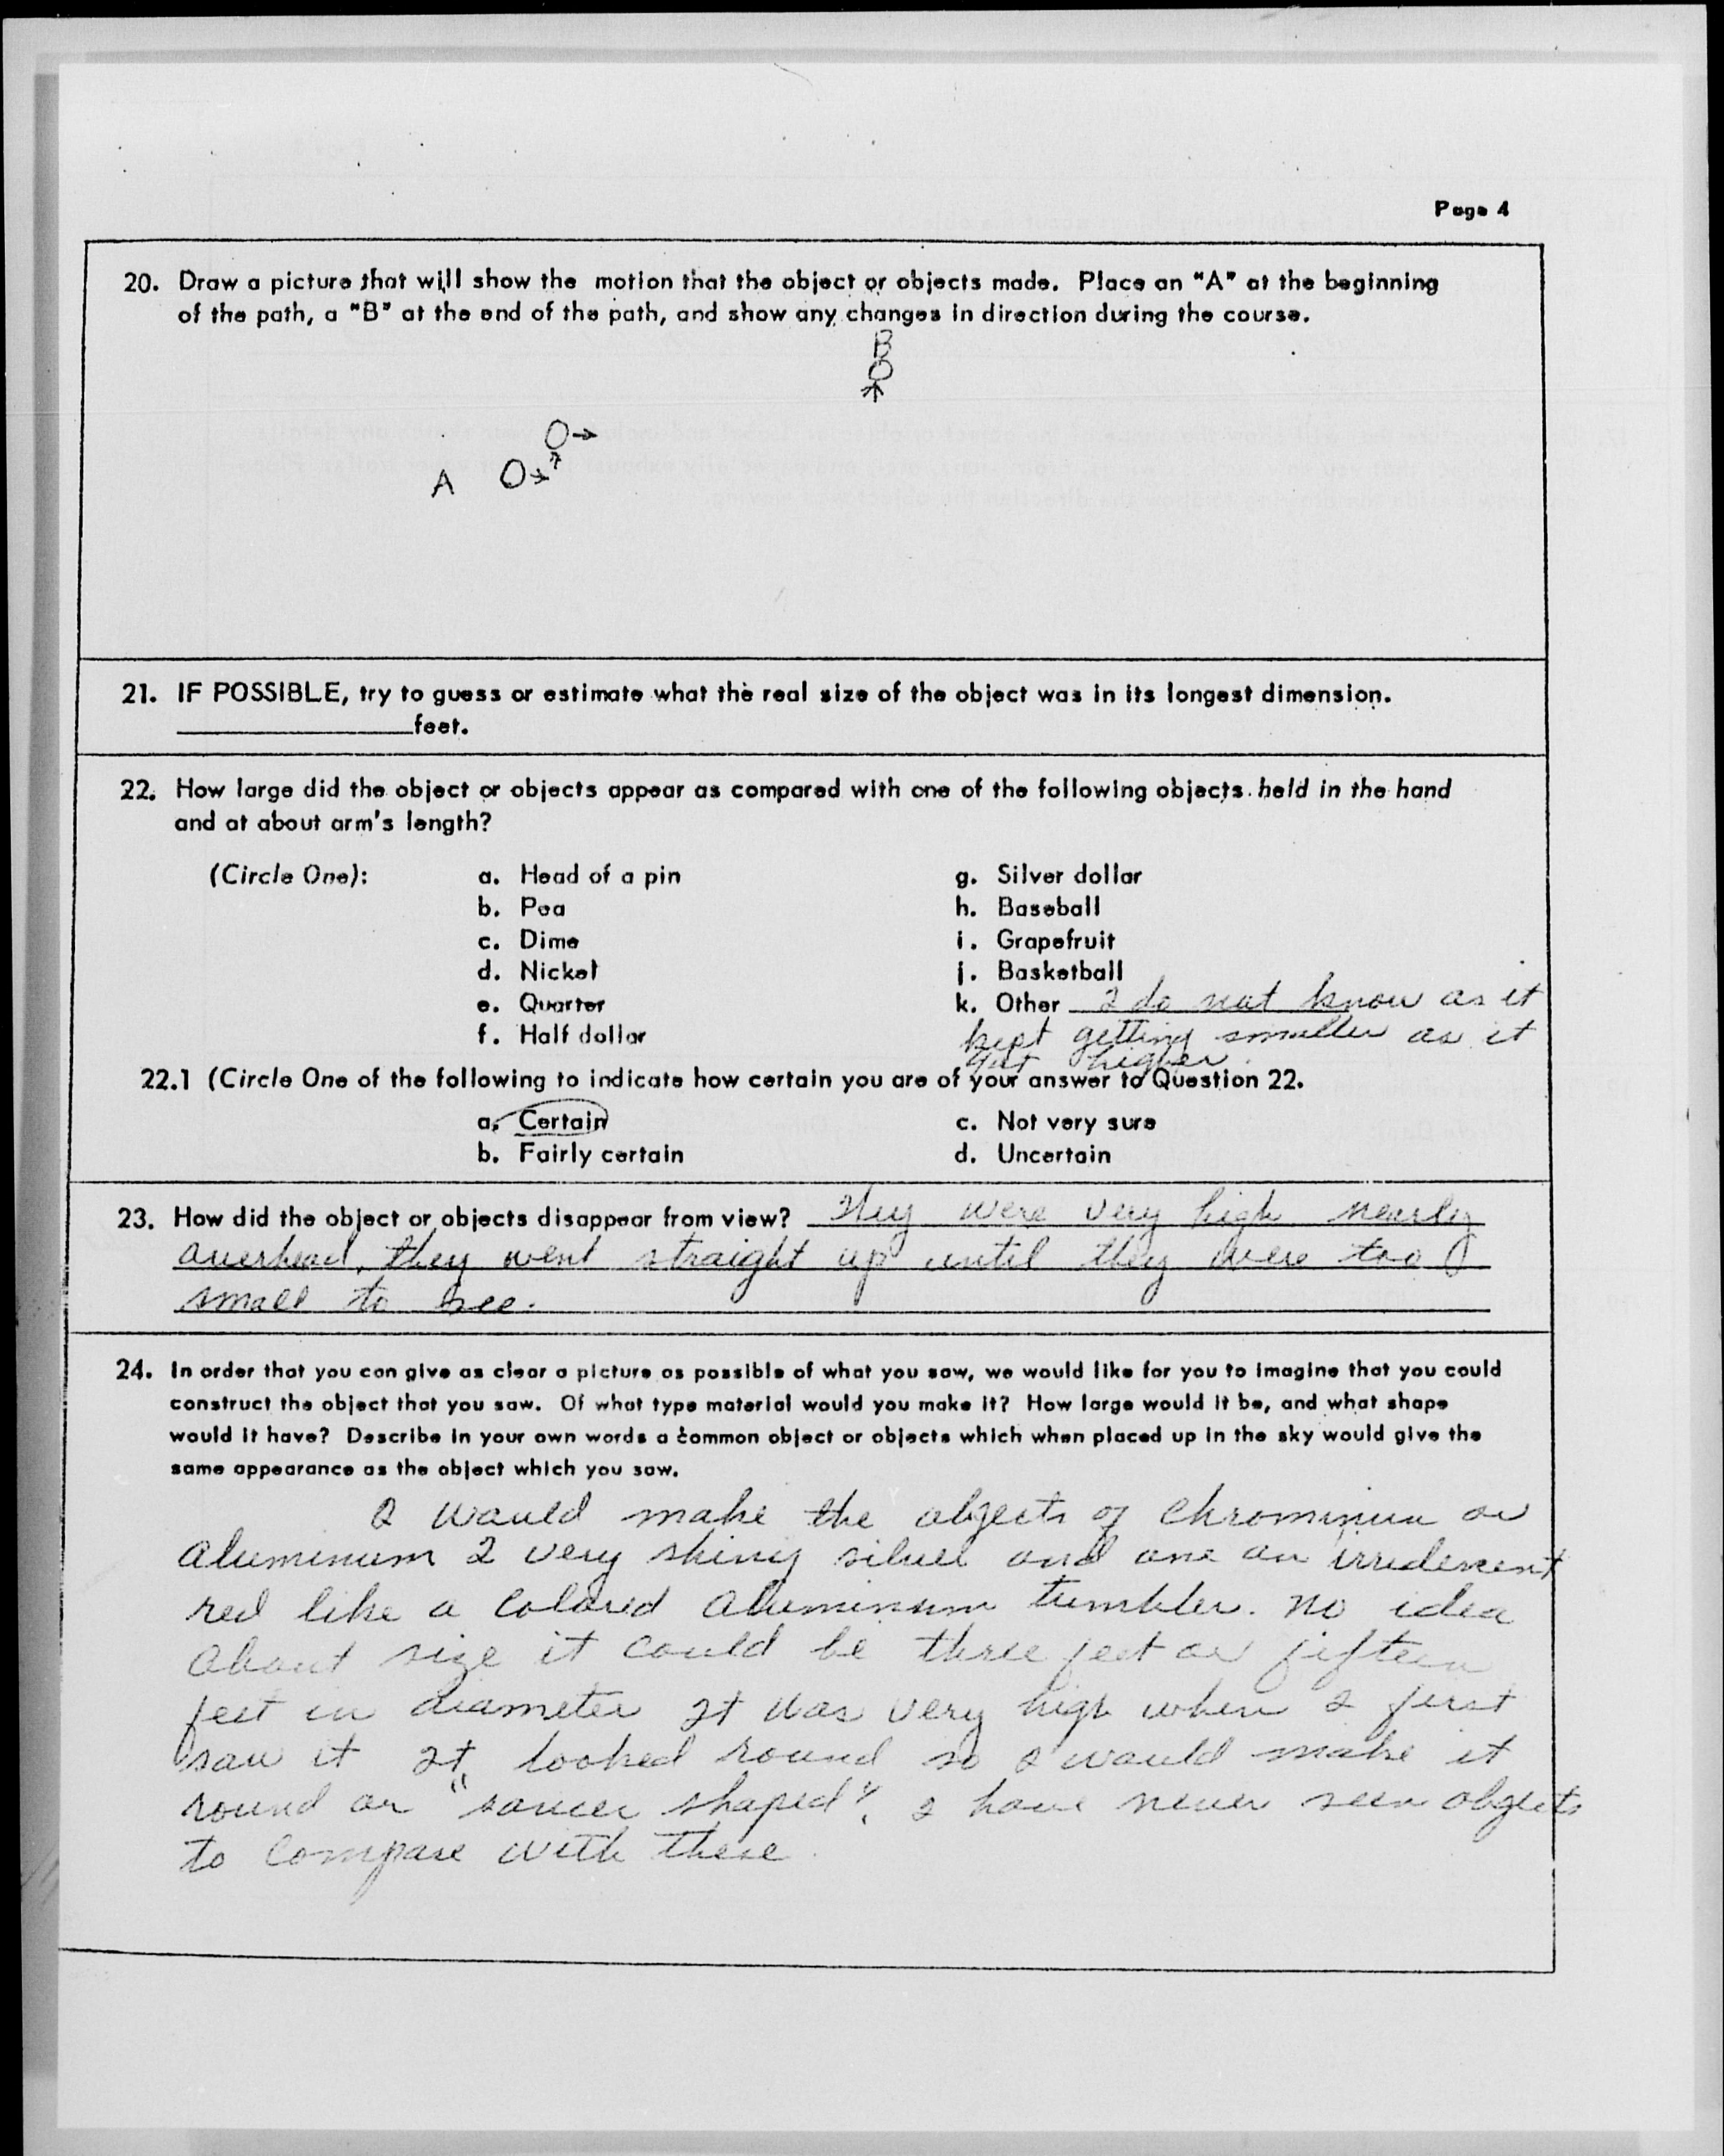 Page 4
20. Draw a picture that will show the motion that the object or objects made. Place an "A" at the beginning
of the path, a "B" at the end of the path, and show any changes in direction during the course.
B
A
21. IF POSSIBLE, try to guess or estimate what the real size of the object was in its longest dimension.
____________feet.
22. How large did the object or objects appear as compared with one of the following objects held in the hand
and at about arm's length?
(Circle One): a. Head of a pin g. Silver dollar
b. Pea h. Baseball
c. Dime i. Grapefruit
d. Nickel j. Basketball
e. Quarter k. Other I do not know as it
f. Half dollar kept getting smaller as it
got higher.
22.1 (Circle One of the following to indicate how certain you are of your answer to Question 22.
a. Certain c. Not very sure
b. Fairly certain d. Uncertain
23. How did the object or objects disappear from view? They were very high nearly
overhead, they went straight up until they were too
small to see.
24. In order that you can give as clear a picture as possible of what you saw, we would like for you to imagine that you could
construct the object that you saw. Of what type material would you make it? How large would it be, and what shape
would it have? Describe in your own words a common object or objects which when placed up in the sky would give the
same appearance as the object which you saw.
I would make the objects of chrominum or
aluminum 2 very shiny silver and one an irridescent
red like a colored aluminum tumbler. no idea
about size it could be three feet or fifteen
feet in diameter It was very high when I first
saw it It looked round so I would make it
round or "saucer shaped". I have never seen objects
to compare with these.